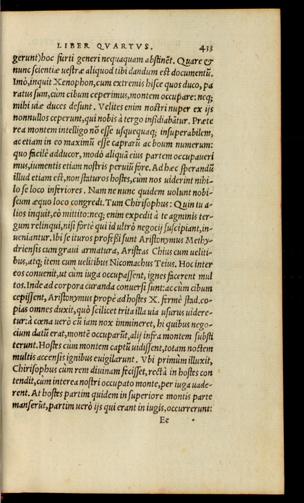 LIBER QVARTVS. 433
gerunt) hoc furti generi nequaquam abstinēt. Quare &
nunc scientiæ uestræ aliquod tibi dandum est documentū.
Imò, inquit Xenophon, cum extremis hisce quos duco, pa
ratus sum, cùm cibum ceperimus, montem occupare: neq;
mihi uiæ duces desunt. Velites enim nostri nuper ex ijs
nonnullos ceperunt, qui nobis à tergo insidiabātur. Præte
rea montem intelligo nō esse usquequaq; insuperabilem,
ac etiam in eo maximū esse caprarū ac boum numerum:
quo facilè adducor, modò aliquā eius partem occupaueri
mus, iumentis etiam nostris peruiū fore. Ad hæc sperandū
illud etiam est, non staturos hostes, cùm nos uiderint nihi-
lo se loco inferiores. Nam ne nunc quidem uolunt nobi-
scum æquo loco congredi. Tum Chirisophus: Quin tu a-
lios inquit, eò mittito: neq; enim expedit à te agminis ter-
gum relinqui, nisi fortè qui id ultrò negocij suscipiant, in-
ueniantur. Ibi se ituros professi sunt Aristonymus Methy-
driensis cum graui armatura, Aristeas Chius cum ueliti-
bus, atq; item cum uelitibus Nicomachus Teius. Hoc inter
eos conuenit, ut cùm iuga occupassent, ignes facerent mul
tos. Inde ad corpora curanda conuersi sunt: ac cùm cibum
cepissent, Aristonymus propè ad hostes X. fermè stad. co-
pias omnes duxit, quò scilicet trita illa uia usurus uidere-
tur: à cœna uerò cū iam nox immineret, hi quibus nego-
cium datū erat, montē occupāt, alij infra montem subsi
terunt. Hostes cùm montem captū uidissent, totam noctem
multis accensis ignibus euigilarunt. Vbi primùm illuxit,
Chirisophus cùm rem diuinam fecisset, rectà in hostes con
tendit, cùm interea nostri occupato monte, per iuga uade-
rent. At hostes partim quidem in superiore montis parte
manserūt, partim uerò ijs qui erant in iugis, occurrerunt:
Ee